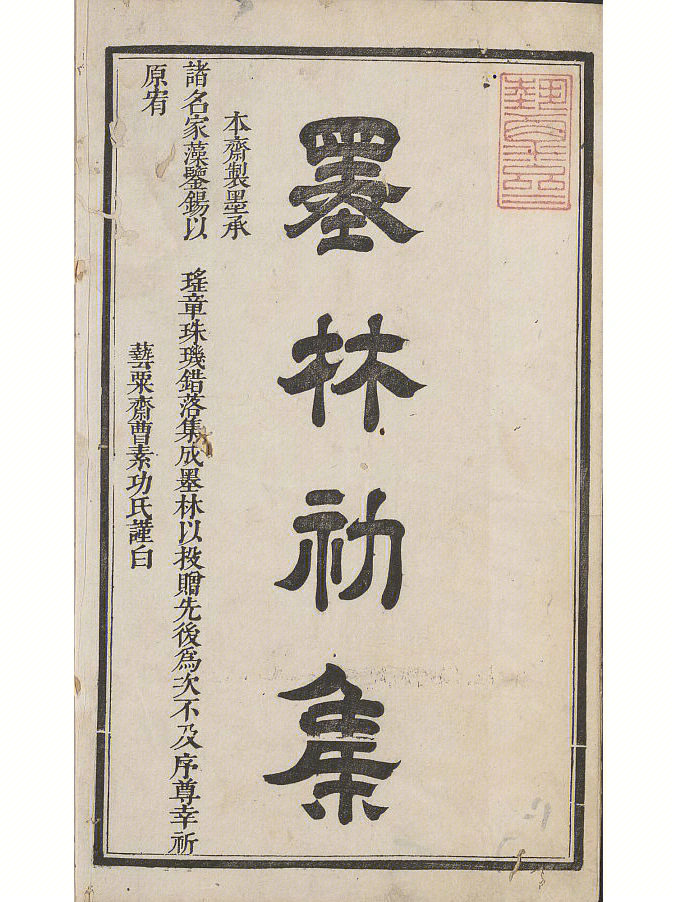 墨林初集
本齋製墨承
諸名家藻鑒錫以 瑤章珠璣錯落集成墨林以投贈先後爲次不及序尊幸祈
原宥
藝粟齋曹素功氏謹白